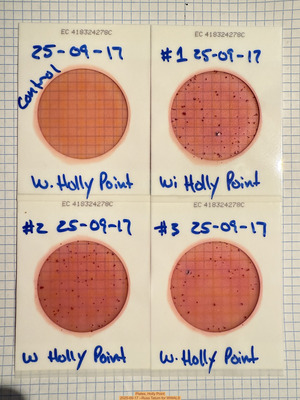 EC 418324278C
25-09-17
Control
W. Holly Point
EC 418324278C
#1 25-09-17
Wi Holly Point
EC 418324278C
#2 25-09-17
W Holly Point
EC 418324278C
#3 25-09-17
W. Holly Point